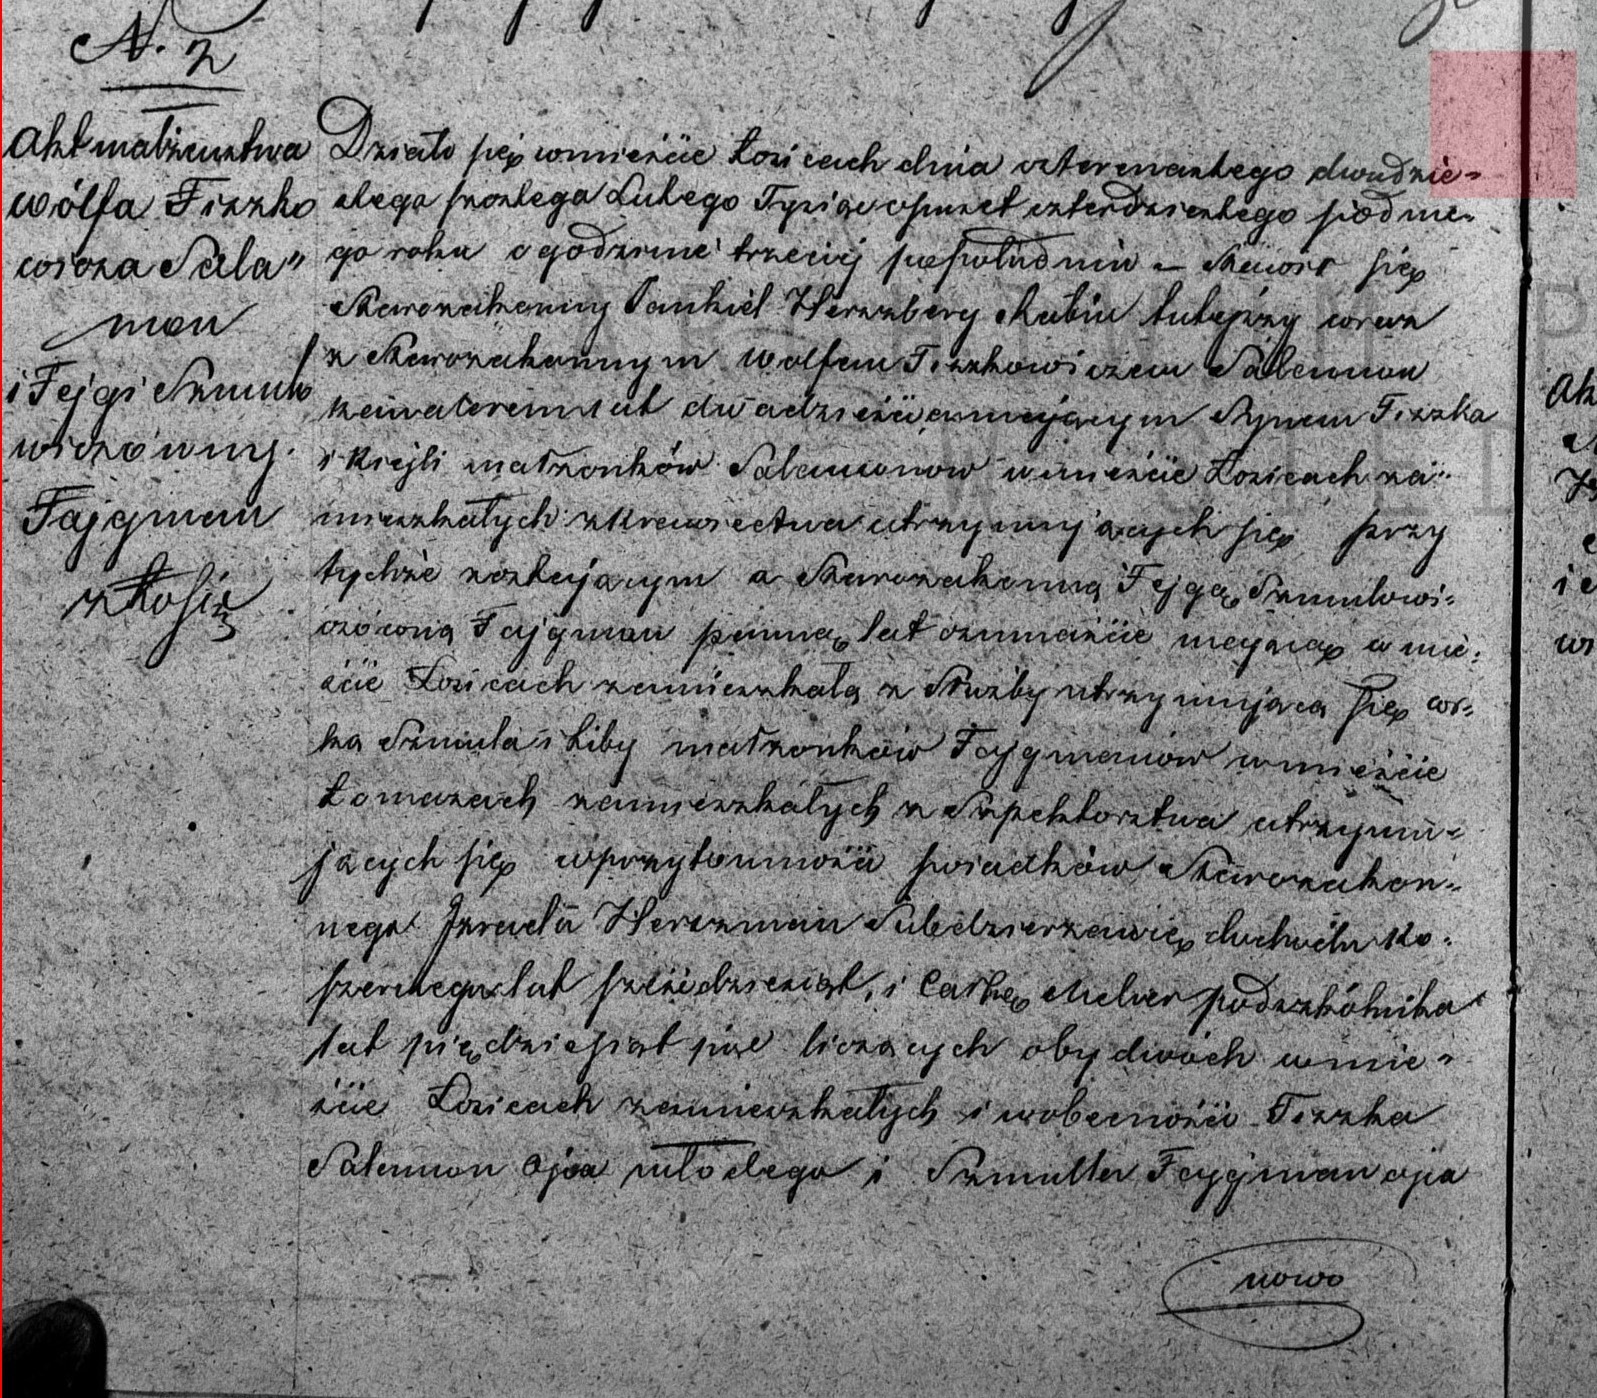 N. 2
Akt małżeństwa
Wólfa Fiszko
wicza Sala"
mon
i Fejgi Szmulo
wiczówny
Fajgman
z Łosic
Działo się w mieście Łosicach dnia czternastego dwudzie=
stego szóstego Lutego Tysiąc ośmset czterdziestego siódme=
go roku o godzinie trzeciej po południu – Stawił się
Starozakonny Jankiel Herszberg Rabin tutejszy wraz
z Starozakonnym Wolfem Fiszkowiczem Salamon
kawalerem lat dwadzieścia mającym Synem Fiszka
i Kiejli małżonków Salamonow w mieście Łosicach za=
mieszkałych z Krawiectwa utrzymujących się przy
tychże zostającym a Starozakonną Fejgą Szmulowi=
czówną Fajgman panną lat ośmnaście mającą w mie=
ście Łosicach zamieszkałą z Służby utrzymującą się cór=
ką Szmula i Liby małżonków Fajgmanów w mieście
Łomazach zamieszkałych z utrzymu=
jących się w przytomności świadków Starozakon=
nego Izraela Herszman Subdzierżawcę dochodu Ko=
szernego lat sześćdziesiąt, i podszkólnika
lat pięćdziesiąt pięć liczących obydwóch w mie=
ście Łosicach zamieszkałych i w obecności Fiszka
Salamon Ojca młodego i Szmula Fajgman ojca
nowo